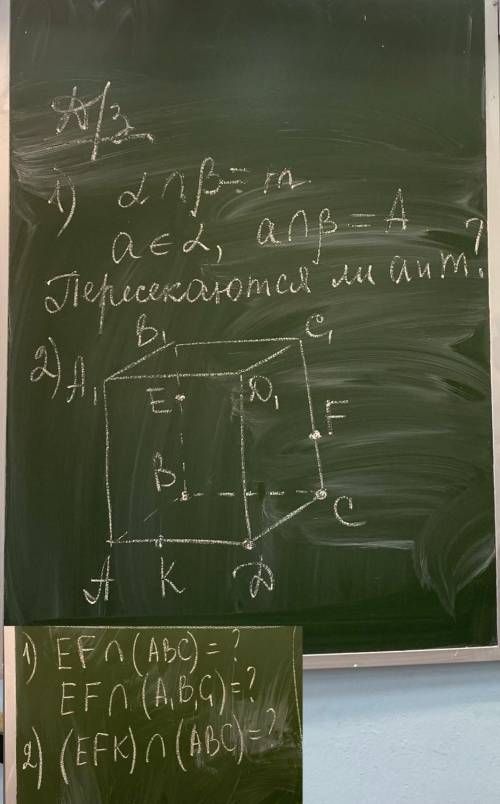 Д/з
1) α ∩ β = m
a ∈ α, a ∩ β = A
Пересекаются ли a и m?
2)
B₁
C₁
A₁
D₁
E
F
B
C
A
K
D
1) EF ∩ (ABC) = ?
EF ∩ (A₁B₁C₁) = ?
2) (EFK) ∩ (ABC) = ?